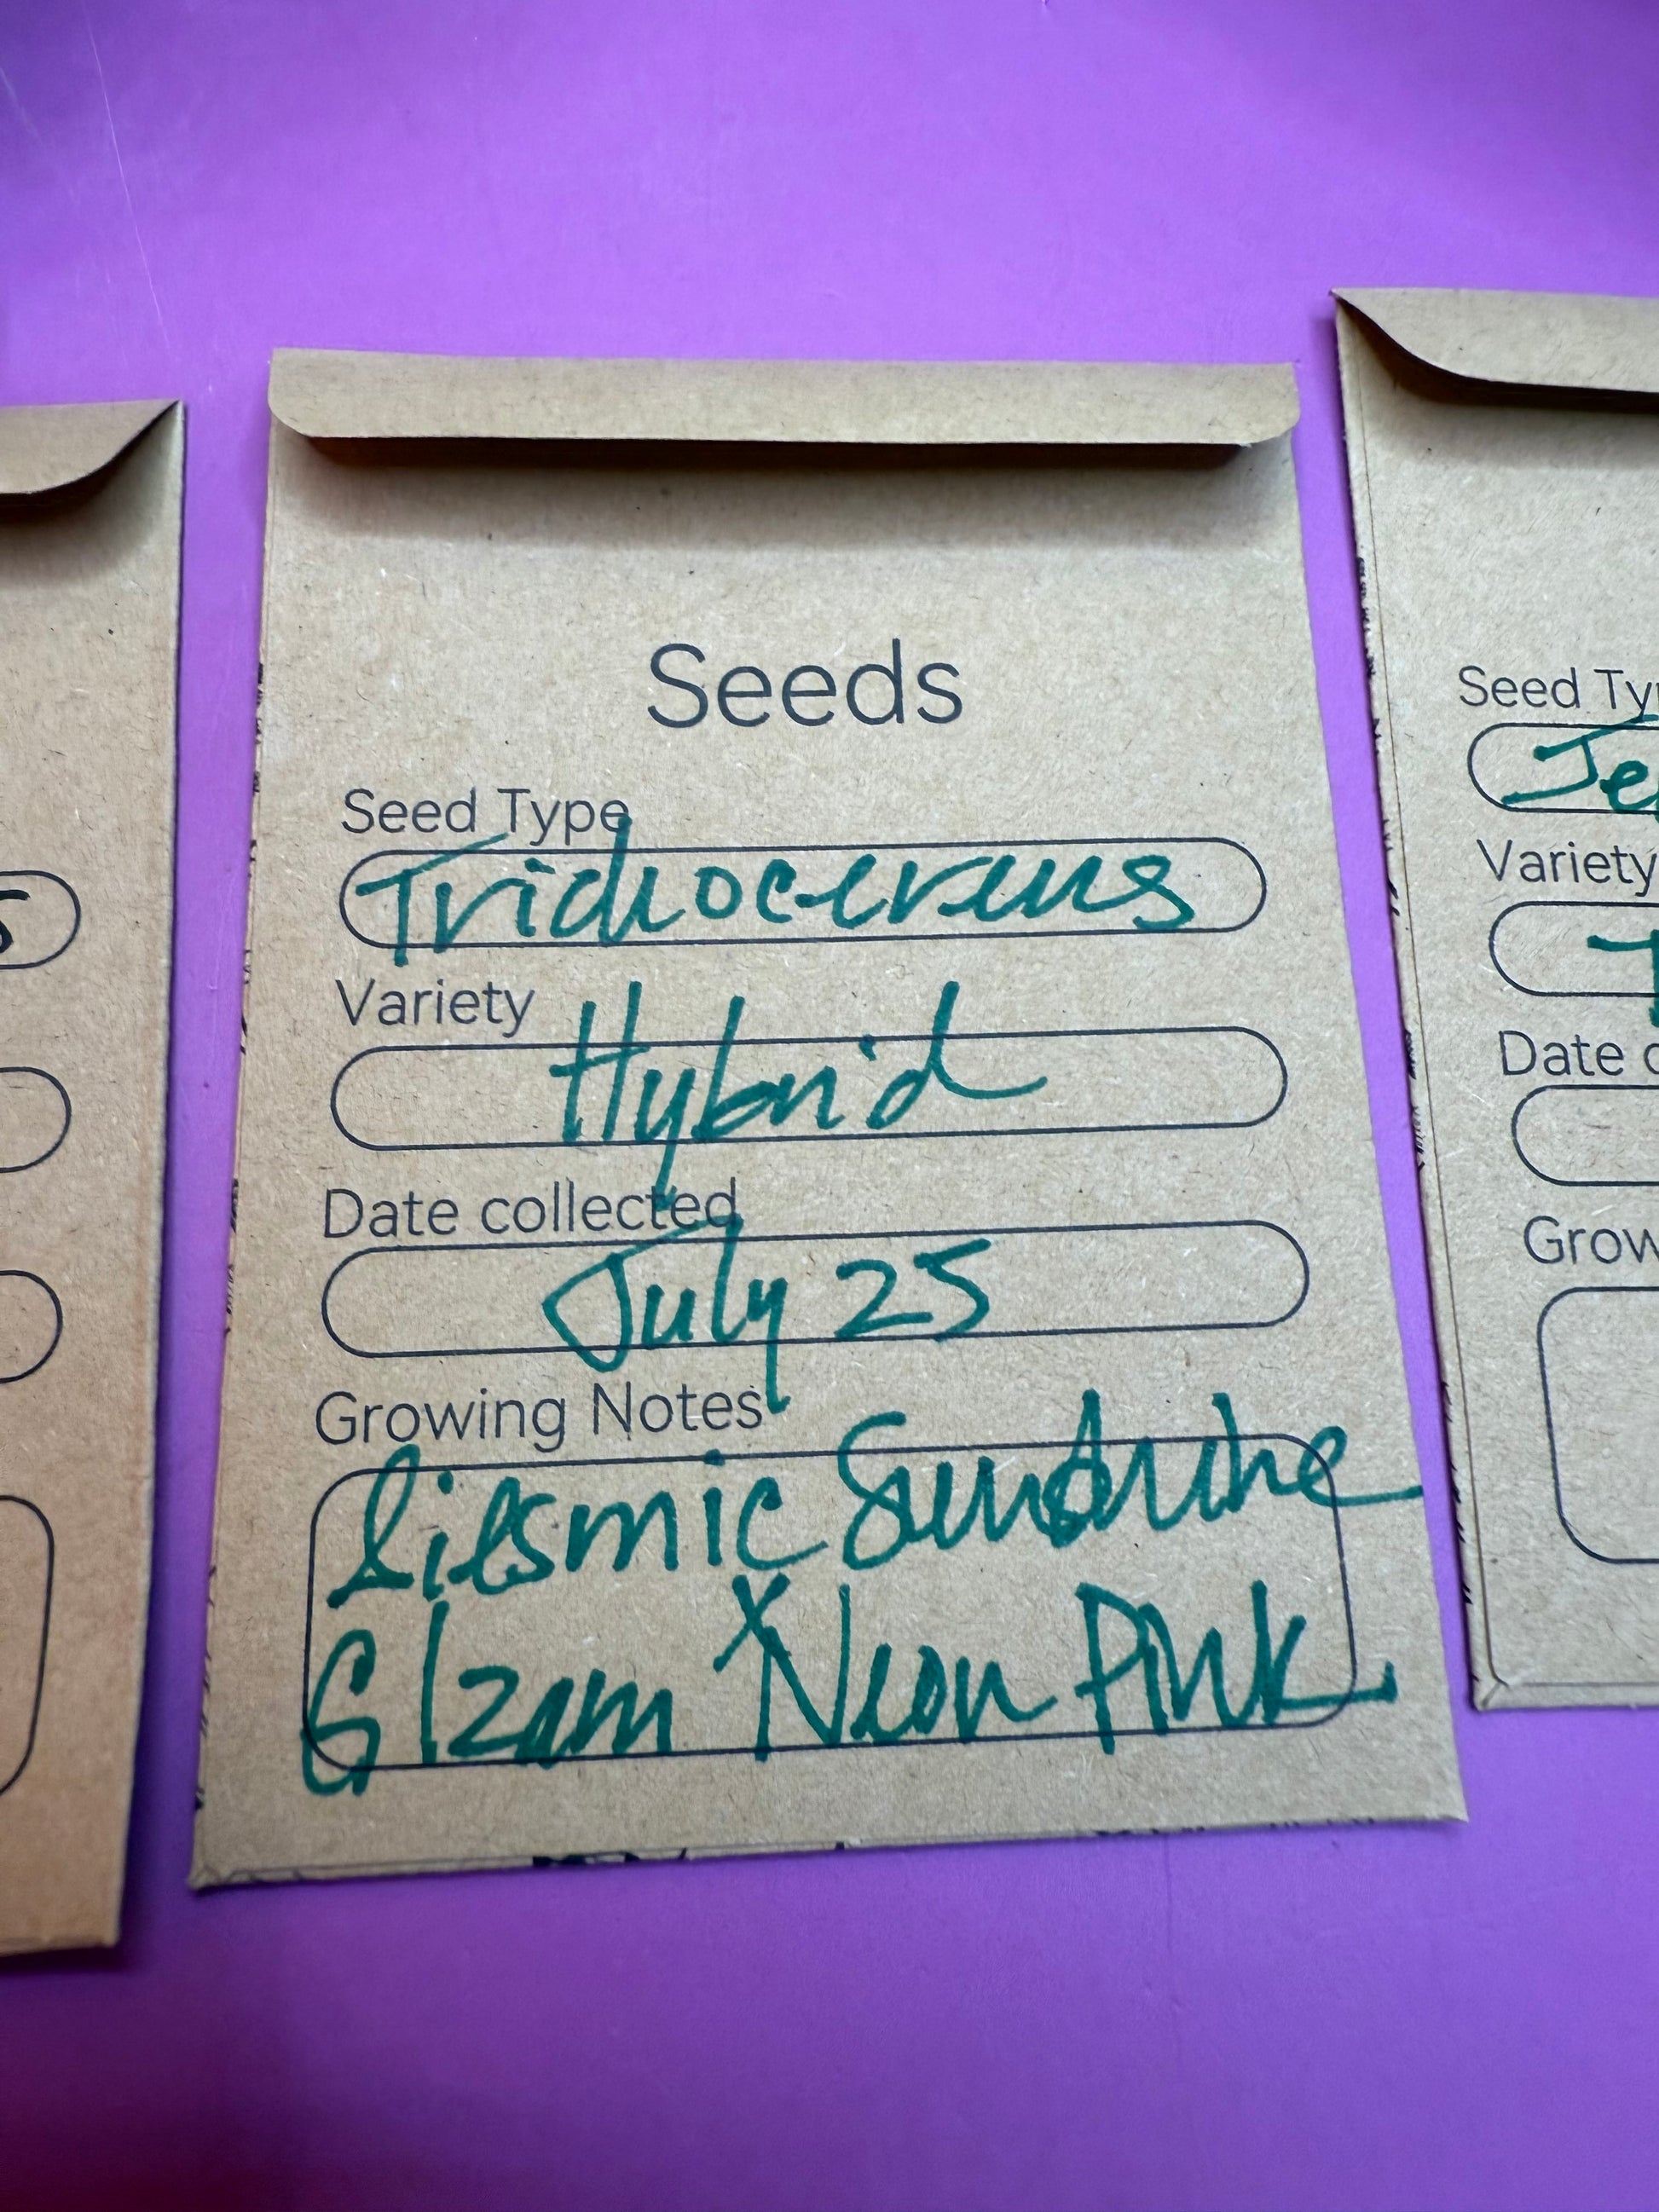 Seeds
Seed Type
Trichocereus
Variety
Hybrid
Date collected
July 25
Growing Notes
X
Glzam Neon Pink
5
Seed Ty
Je
Variety
T
Date c
Grow